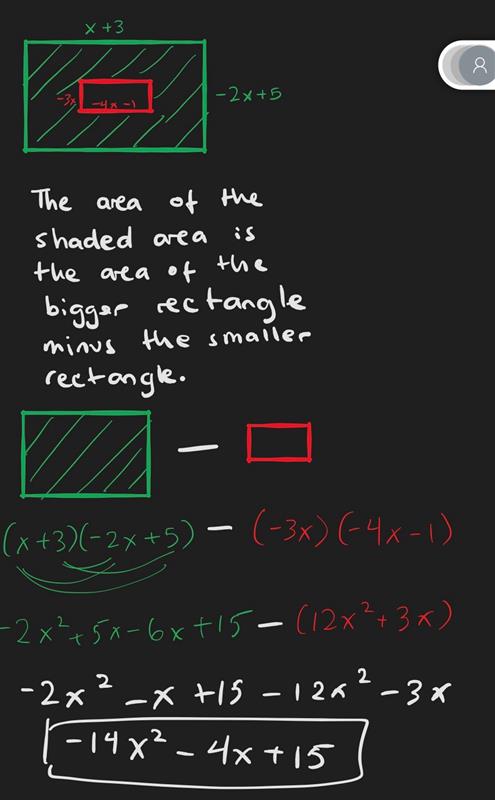 x+3
-3x
-4x-1
-2x+5
The area of the
shaded area is
the area of the
bigger rectangle
minus the smaller
rectangle.
—
(x+3)(-2x+5) - (-3x)(-4x-1)
-2x²+5x-6x+15 - (12x²+3x)
-2x² -x +15 -12x² -3x
-14x² -4x+15